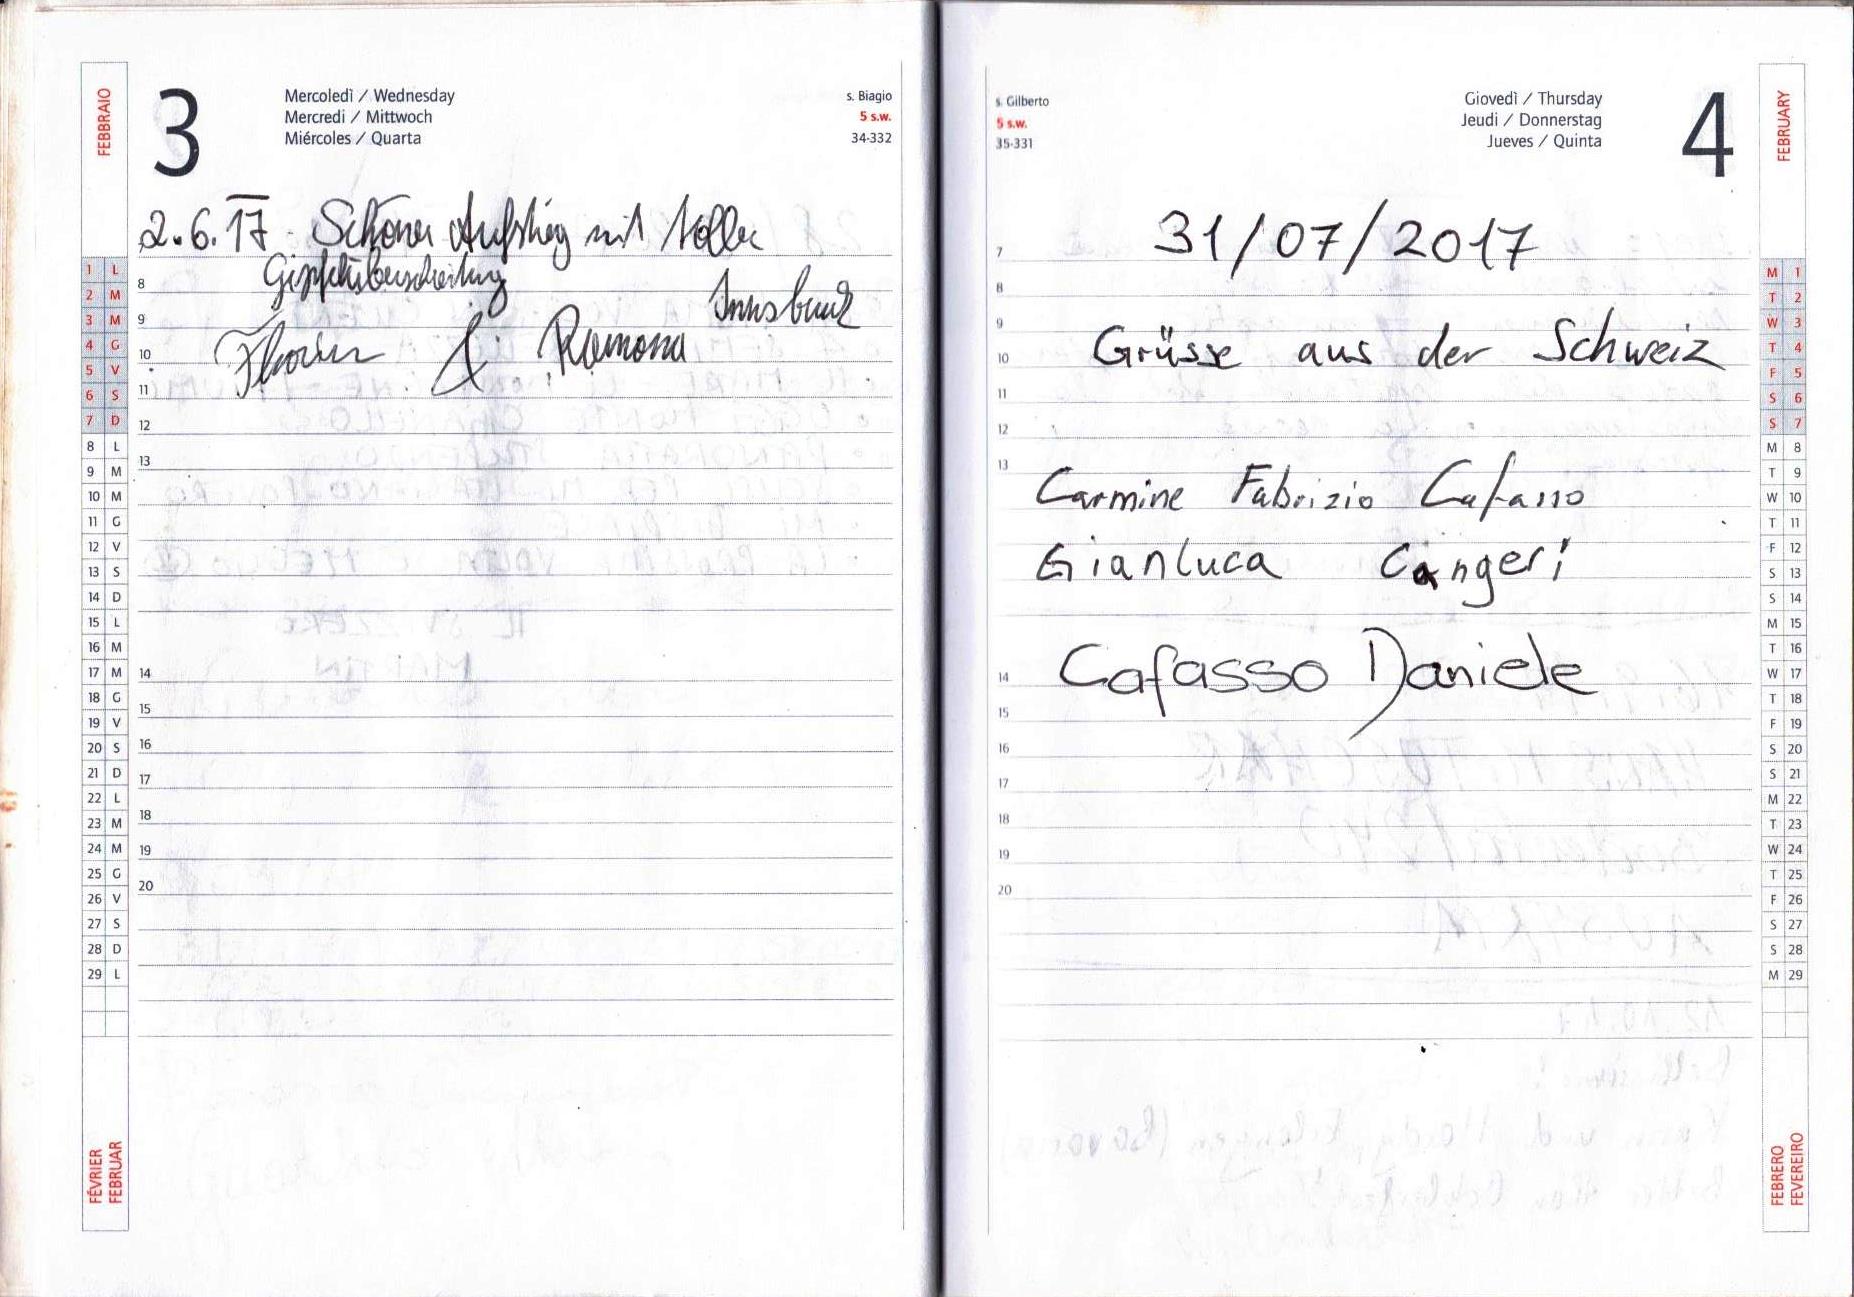 FEBBRAIO
3
Mercoledì / Wednesday
Mercredi / Mittwoch
Miércoles / Quarta
s. Biagio
5 s.w.
34-332
2.6.17 - Schöner Aufstieg mit toller
Gipfelüberschreitung
Innsbruck
Florian & Ramona
8
9
10
11
12
13
14
15
16
17
18
19
20
1 L
2 M
3 M
4 G
5 V
6 S
7 D
8 L
9 M
10 M
11 G
12 V
13 S
14 D
15 L
16 M
17 M
18 G
19 V
20 S
21 D
22 L
23 M
24 M
25 G
26 V
27 S
28 D
29 L
FÉVRIER
FEBRUAR
s. Gilberto
5 s.w.
35-331
Giovedì / Thursday
Jeudi / Donnerstag
Jueves / Quinta
4
FEBRUARY
31/07/2017
Grüsse aus der Schweiz
Carmine Fabrizio Cafasso
Gianluca Cangeri
Cafasso Daniele
7
8
9
10
11
12
13
14
15
16
17
18
19
20
M 1
T 2
W 3
T 4
F 5
S 6
S 7
M 8
T 9
W 10
T 11
F 12
S 13
S 14
M 15
T 16
W 17
T 18
F 19
S 20
S 21
M 22
T 23
W 24
T 25
F 26
S 27
S 28
M 29
FEBRERO
FEVEREIRO